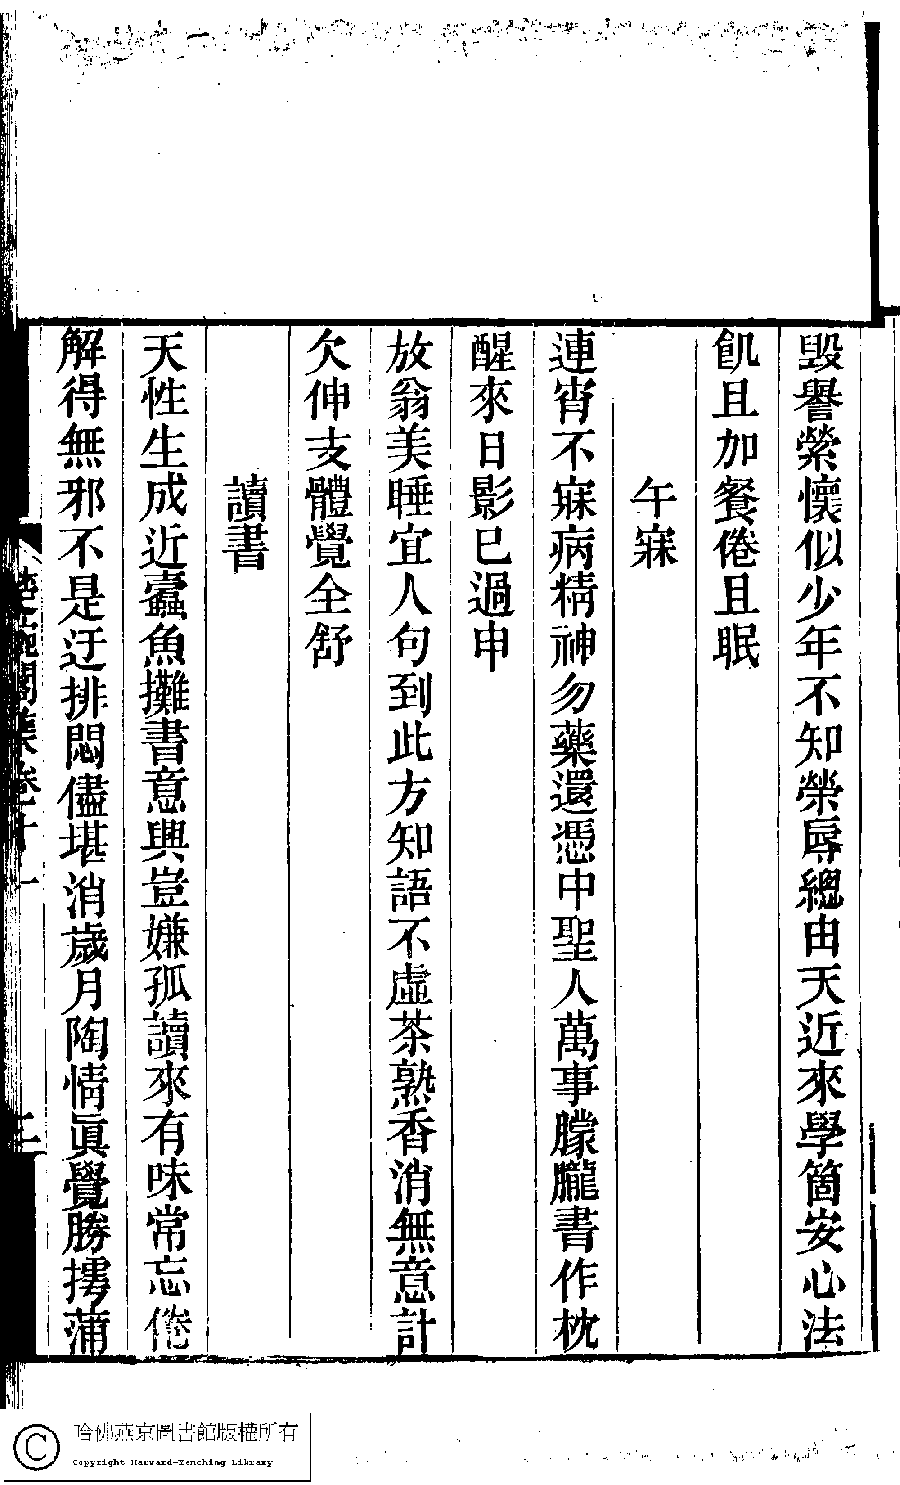 毀譽縈懷似少年不知榮辱總由天近來學箇安心法
飢且加餐倦且眠
午寐
連宵不寐病精神勿藥還憑中聖人萬事朦朧書作枕
醒來日影已過申
放翁美睡宜人句到此方知語不虛茶熟香消無意計
欠伸支體覺全舒
讀書
天性生成近蠹魚攤書意興豈嫌孤讀來有味常忘倦
解得無邪不是迂排悶儘堪消歲月陶情眞覺勝摴蒲
楚畹閣集卷十一
三
哈佛燕京圖書館版權所有
Copyright Harvard-Yenching Library